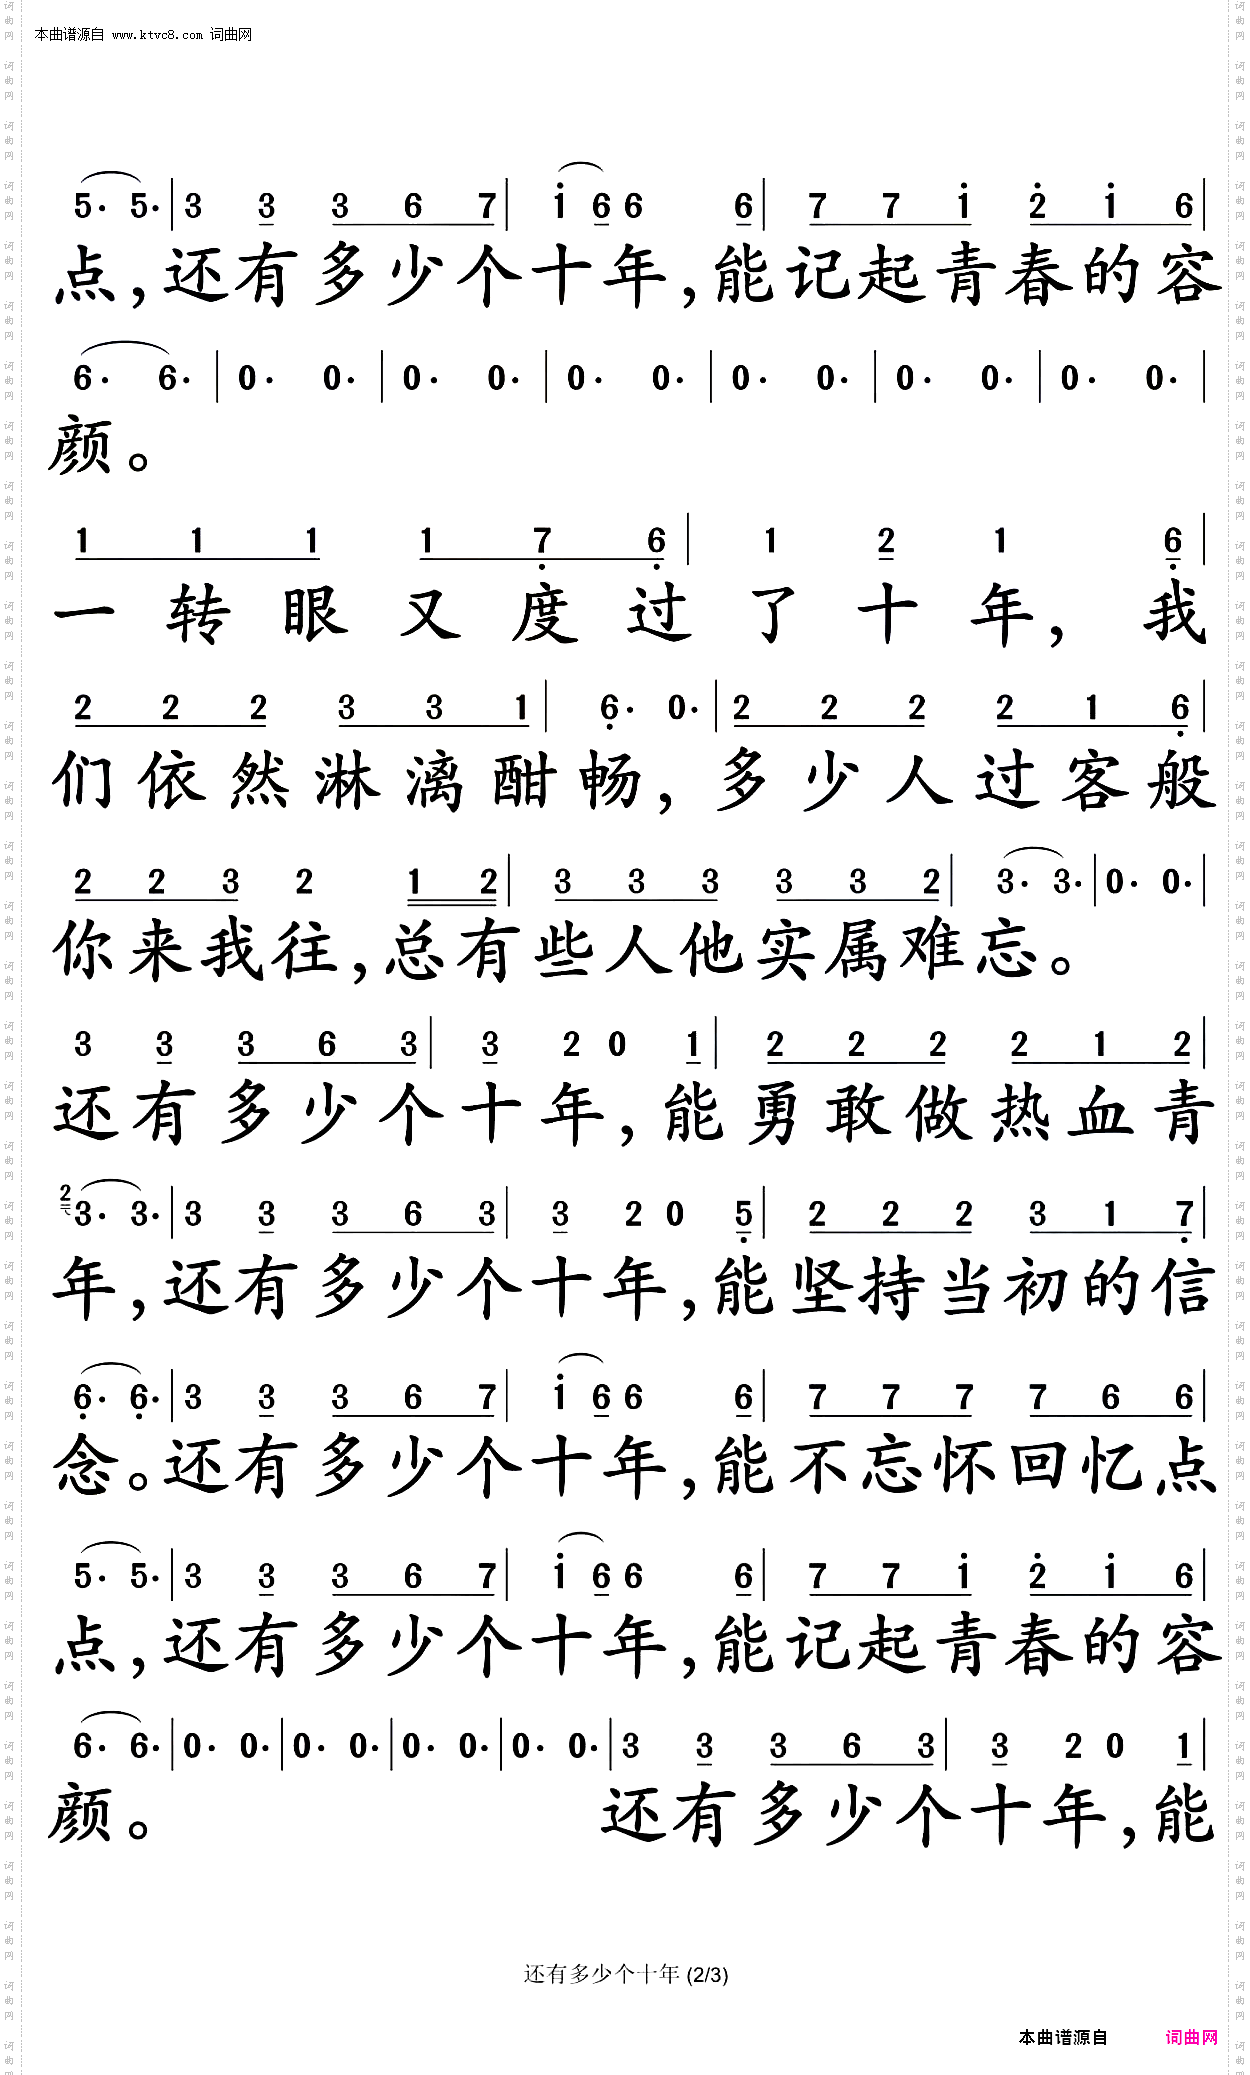 本曲谱源自 www.ktvc8.com 词曲网
5· 5· | 3 3 3 6 7 | i 6 6 6 | 7 7 i 2 i 6 |
点,还有多少个十年,能记起青春的容
6· 6· | 0· 0· | 0· 0· | 0· 0· | 0· 0· | 0· 0· | 0· 0· |
颜。
1 1 1 1 7 6 | 1 2 1 6 |
一转眼又度过了十年,我
2 2 2 3 3 1 | 6· 0· | 2 2 2 2 1 6 |
们依然淋漓酣畅,多少人过客般
2 2 3 2 1 2 | 3 3 3 3 3 2 | 3· 3· | 0· 0· |
你来我往,总有些人他实属难忘。
3 3 3 6 3 | 3 2 0 1 | 2 2 2 2 1 2 |
还有多少个十年,能勇敢做热血青
2 3· 3· | 3 3 3 6 3 | 3 2 0 5 | 2 2 2 3 1 7 |
年,还有多少个十年,能坚持当初的信
6· 6· | 3 3 3 6 7 | i 6 6 6 | 7 7 7 7 6 6 |
念。还有多少个十年,能不忘怀回忆点
5· 5· | 3 3 3 6 7 | i 6 6 6 | 7 7 i 2 i 6 |
点,还有多少个十年,能记起青春的容
6· 6· | 0· 0· | 0· 0· | 0· 0· | 0· 0· | 3 3 3 6 3 | 3 2 0 1 |
颜。 还有多少个十年,能
还有多少个十年 (2/3)
本曲谱源自 词曲网